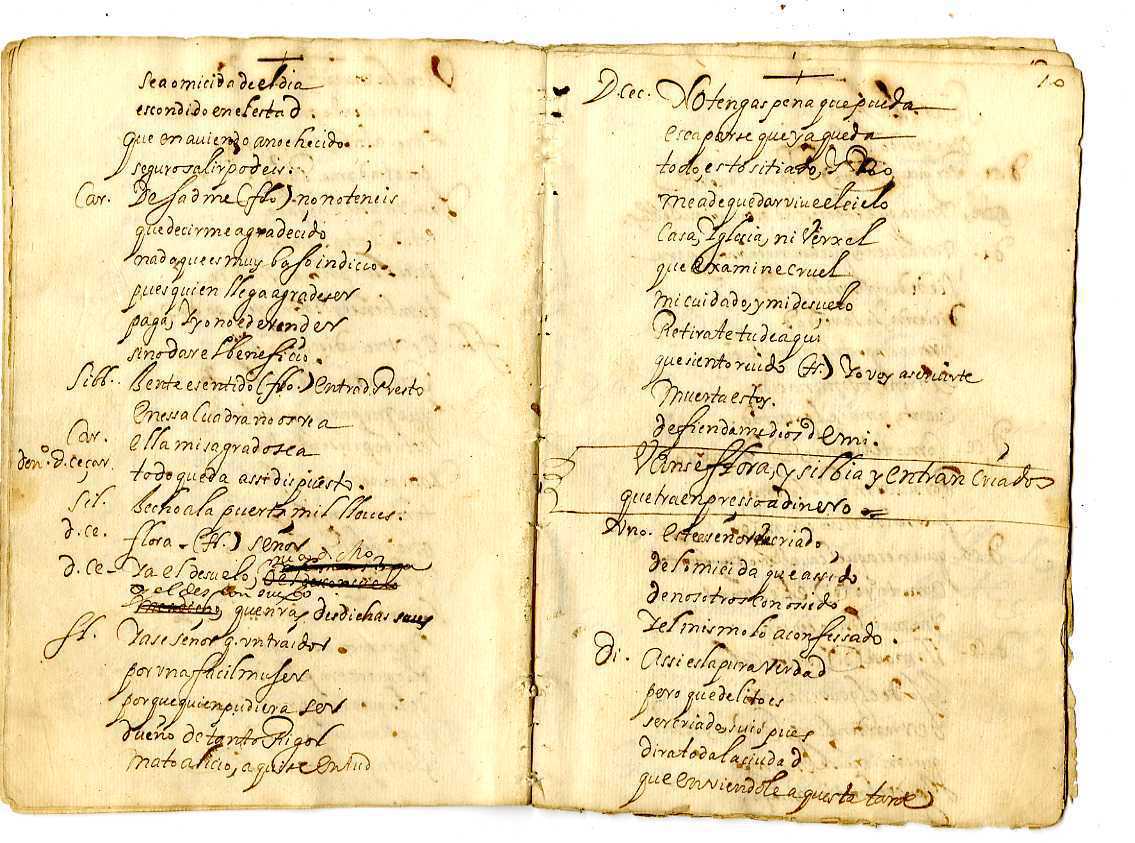 sea omicida de el dia
escondido en el estad.
que en auiendo anochecido.
seguro salir podeis.
Car. Dexadme (flo.) no no teneis
que decirme agradecido
nada, que es muy baxo indicio
pues quien llega agradeser
paga, y yo no e de vender
sino dar el beneficio.
Silb. Jente e sentido (flo.) entrad presto
en essa cuadra
Car. ella mi sagrado sea
den.º d. ceçar. todo queda assi dispuesto.
Sil. Hecho a la puerta mil llaues.
d. ce. flora. (fl.) señor
d. ce. Ya el desuelo,
desdichas
fl. Ya se señor q. vn traidor
por vna facil muger
porque quien pudiera ser
dueño de tanto Rigor
mato a licio, a quise
10
D. Cec. No tengas pena que pueda
escaparse que ya queda
todo, esto sitiado, y no
me a de quedar viue el cielo
Casa, Iglesia, ni Verxel
que examine cruel
mi cuidado, y mi desuelo
Retirate tu de aqui
que siento ruido (fl.) Yo voy
Muerta estoy.
defiendame dios de mi.
Vanse fflora, y silbia y entran criados
que traen presso a dinero
Vno. este señor es criado
del omicida que assido
de nosotros conosido
y el mismo lo a confessado.
Di. Assi es la pura verdad
pero que delito es
ser criado suio pues
dira toda la ciudad
que en viendole a questa tarde